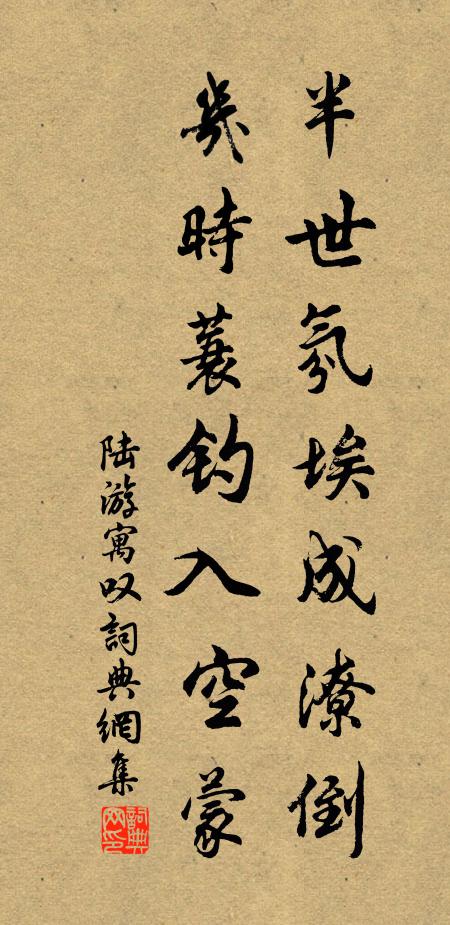 半世氛埃成潦倒
幾時蓑钓入空蒙
陆游寓叹詞典網集
詞典网印